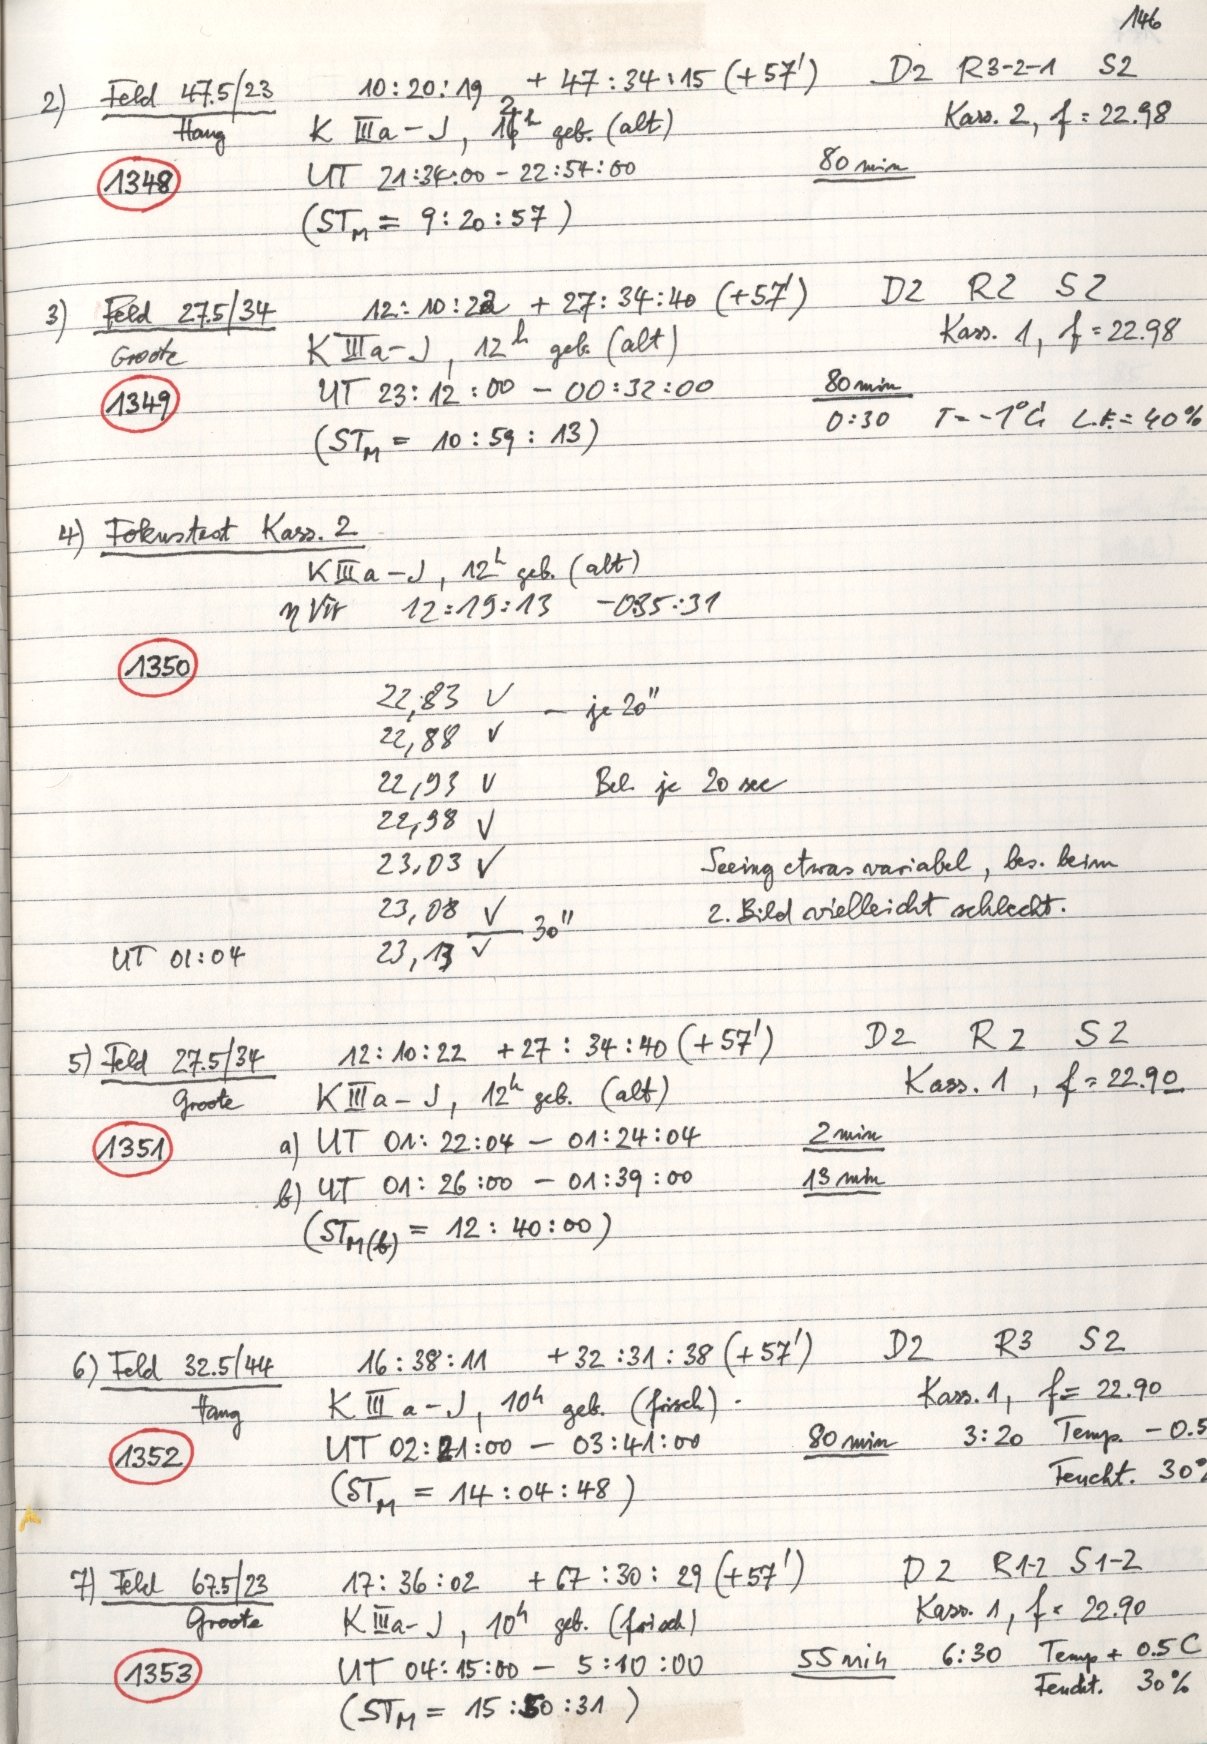 146
2) Feld 47.5/23 10:20:19 + 47:34:15 (+57') D2 R3-2-1 S2
Haug K IIIa-J, 12h geb. (alt) Kass. 2, f = 22.98
1348 UT 21:34:00 - 22:54:00 80 min
(STM = 9:20:57)
3) Feld 27.5/34 12:10:22 + 27:34:40 (+57') D2 R2 S2
Groote K IIIa-J, 12h geb. (alt) Kass. 1, f = 22.98
1349 UT 23:12:00 - 00:32:00 80 min
(STM = 10:59:13) 0:30 T = -1°C L.F. = 40%
4) Fokustest Kass. 2
K IIIa-J, 12h geb. (alt)
η Vir 12:19:13 -035:31
1350
22,83 ✓ - je 20"
22,88 ✓
22,93 ✓ Bel. je 20 sec
22,98 ✓
23,03 ✓ Seeing etwas variabel, bes. beim
23,08 ✓ 2. Bild vielleicht schlecht.
30"
UT 01:04 23,13 ✓
5) Feld 27.5/34 12:10:22 +27:34:40 (+57') D2 R2 S2
Groote K IIIa-J, 12h geb. (alt) Kass. 1, f = 22.90
1351 a) UT 01:22:04 - 01:24:04 2 min
b) UT 01:26:00 - 01:39:00 13 min
(STM(b) = 12:40:00)
6) Feld 32.5/44 16:38:11 +32:31:38 (+57') D2 R3 S2
Haug K III a-J, 10h geb. (frisch). Kass. 1, f = 22.90
1352 UT 02:21:00 - 03:41:00 80 min 3:20 Temp. -0.5
(STM = 14:04:48) Feucht. 30%
7) Feld 67.5/23 17:36:02 +67:30:29 (+57') D2 R1-2 S1-2
Groote K IIIa-J, 10h geb. (frisch) Kass. 1, f = 22.90
1353 UT 04:15:00 - 5:10:00 55 min 6:30 Temp + 0.5 C
(STM = 15:50:31) Feucht. 30%